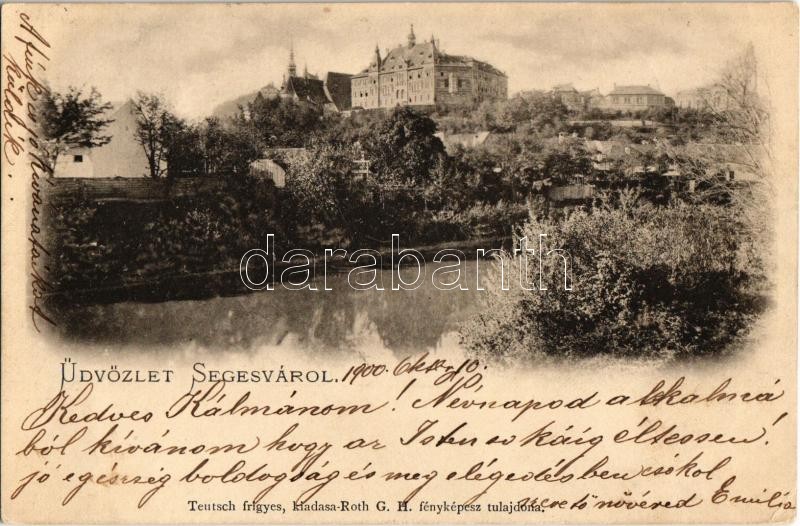 A fiuk is jo kivanataikat
küldik.
darabanth
ÜDVÖZLET SEGESVÁROL. 1900. Okt. 10.
Kedves Kálmánom! Névnapod alkalmá
ból kívánom hogy az Isten sokáig éltessen!
jó egészség boldogság és meg elégedésben csókol
szerető nővéred Emilia
Teutsch frigyes, kiadasa-Roth G. H. fényképesz tulajdona.